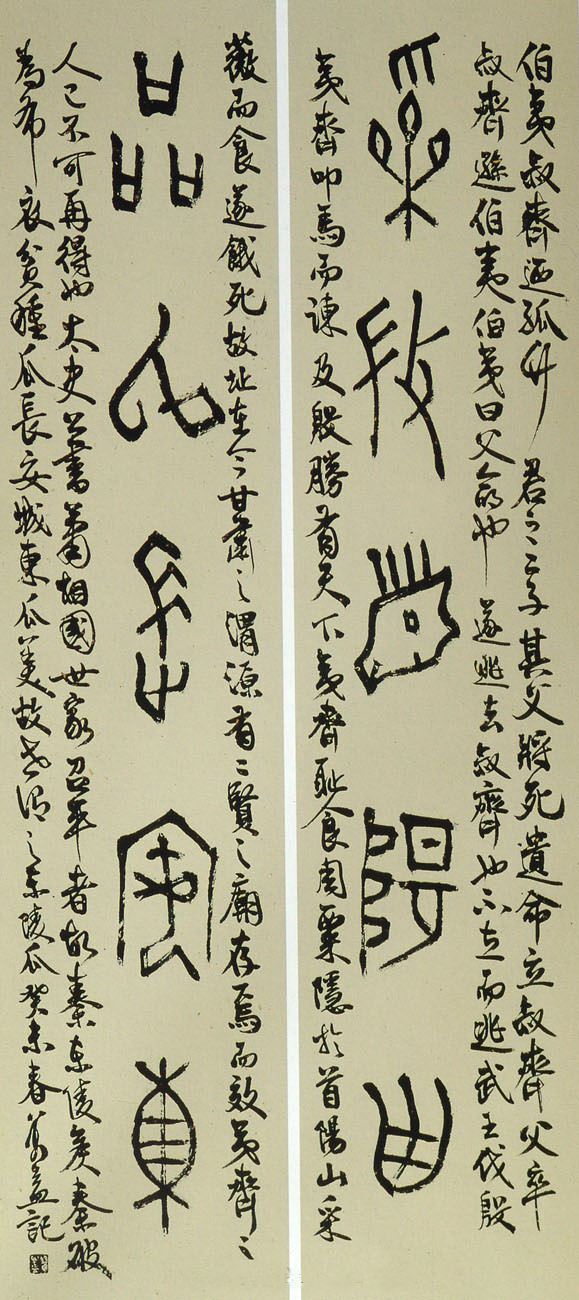 伯夷叔齊迺孤竹君之二子其父將死遺命立叔齊父卒
叔齊遜伯夷伯夷曰父命也遂逃去叔齊也不立而逃武王伐殷
采𢼸首陽曲
夷齊叩馬而諫及殷勝有天下夷齊恥食周粟隱於首陽山采
薇而食遂餓死故址在今甘肅之渭源有二賢之廟存焉而效夷齊之
品瓜長安東
人已不可再得也太史公書蕭相國世家召平者故秦東陵侯秦破
為布衣貧種瓜長安城東瓜美故世謂之東陵瓜癸未春記